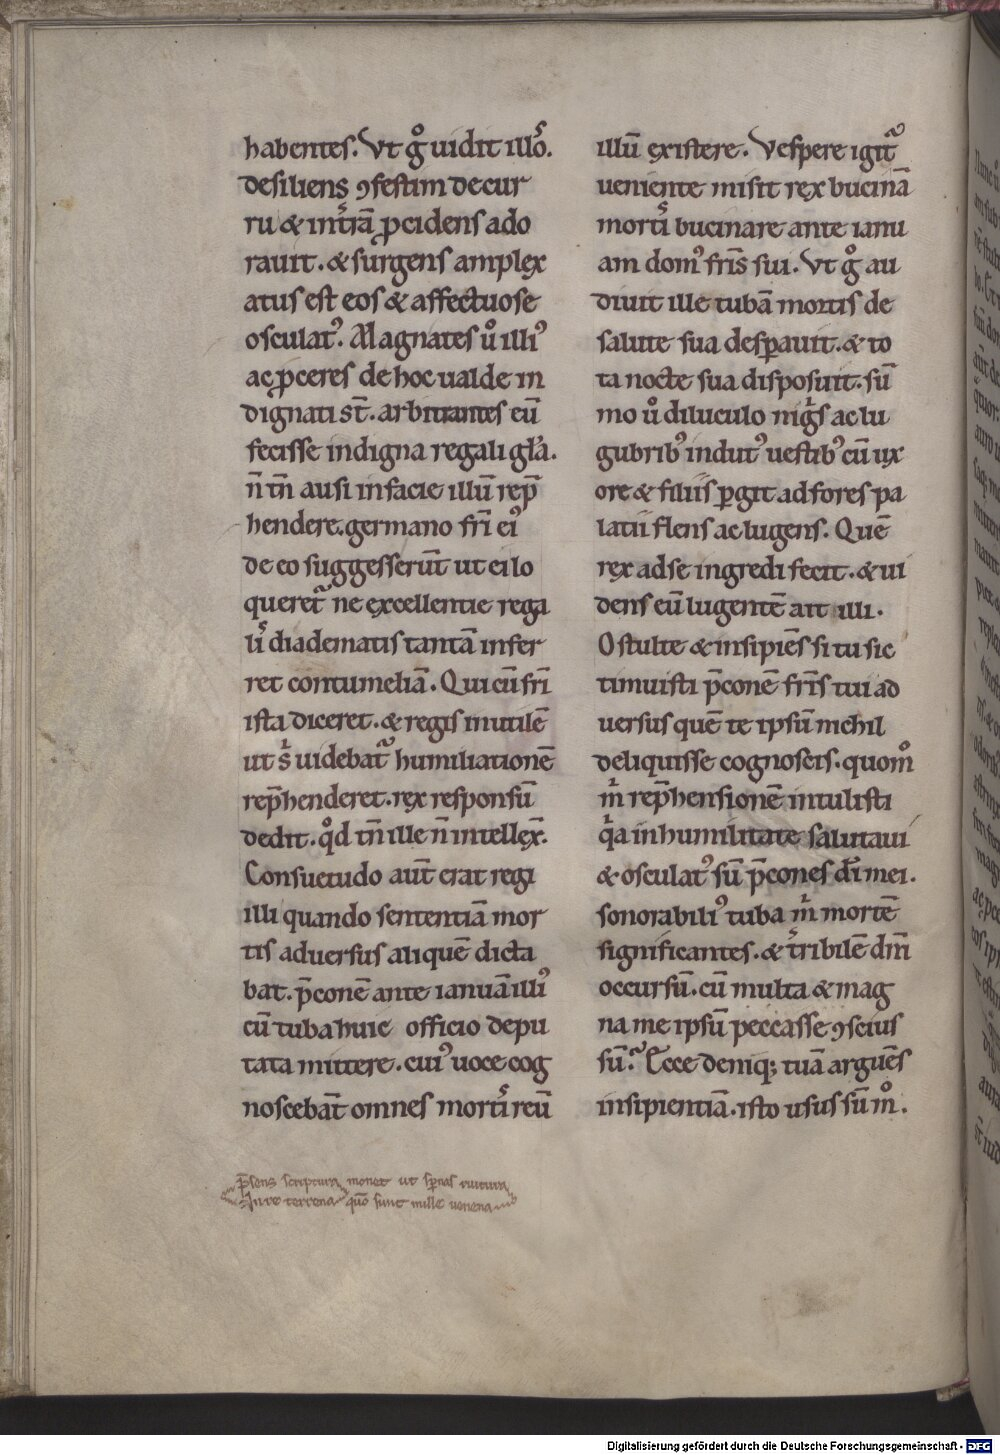 habentes. Vt gͦ uidit illoˢ.
desiliens ꝯfestim de cur
ru & intˢrā ꝓcidens ado
rauit. & surgens amplex
atus est eos & affectuose
osculatꝰ. Magnates uͦ illiꝰ
ac ꝓceres de hoc ualde in
dignati st̄. arbitrantes eū
fecisse indigna regali gła.
n̄ tn̄ ausi in facie illū rep̄
hendere. germano fr̄i eiꝰ
de eo suggesserūt ut ei lo
queret᷑ ne excellentie rega
liˢ diadematis tantā infer
ret contumeliā. Qui cū fr̄i
ista diceret. & regis inutilē
ut sⁱ uidebat᷑ humiliationē
rep̄henderet. rex responsū
dedit. qͦd tn̄ ille n̄ intellex̄.
Consuetudo aut̄ erat regi
illi quando sententiā mor
tis aduersus aliquē dicta
bat. p̄conē ante ianuā illiꝰ
cū tuba huic officio depu
tata mittere. cuiꝰ uoce cog
noscebāt omnes mortiˢ reū
illū existere. Vespere igit᷑
ueniente misit rex bucinā
mortiˢ bucinare ante ianu
am domꝰ fr̄is sui. Vt gͦ au
diuit ille tubā mortis de
salute sua desꝑauit. & to
ta nocte sua disposuit. sū
mo uͦ diluculo nigⁱs ac lu
gubribꝰ indutꝰ uestibꝰ cū ux
ore & filiis ꝑgit ad fores pa
latii flens ac lugens. Quē
rex ad se ingredi fecit. & ui
dens eū lugentē ait illi.
O stulte & insipiēs si tu sic
timuisti p̄conē fr̄is tui ad
uersus quē te ipsū nichil
deliquisse cognoscis. quomͦ
mⁱ rep̄hensionē intulisti
qⁱa in humilitate salutaui
& osculatꝰ sū p̄cones dī mei.
sonorabiliꝰ tuba mⁱ mortē
significantes. & tˢribilē dn̄i
occursū. cū multa & mag
na me ipsū peccasse ꝯscius
sū. Ecce deniq; tuā arguēs
insipientiā. isto usus sū mͦ.
p̄sens scriptura monet ut sꝑnas ritura
Iure terrena quō sunt mille uenena
Digitalisierung gefördert durch die Deutsche Forschungsgemeinschaft - DFG